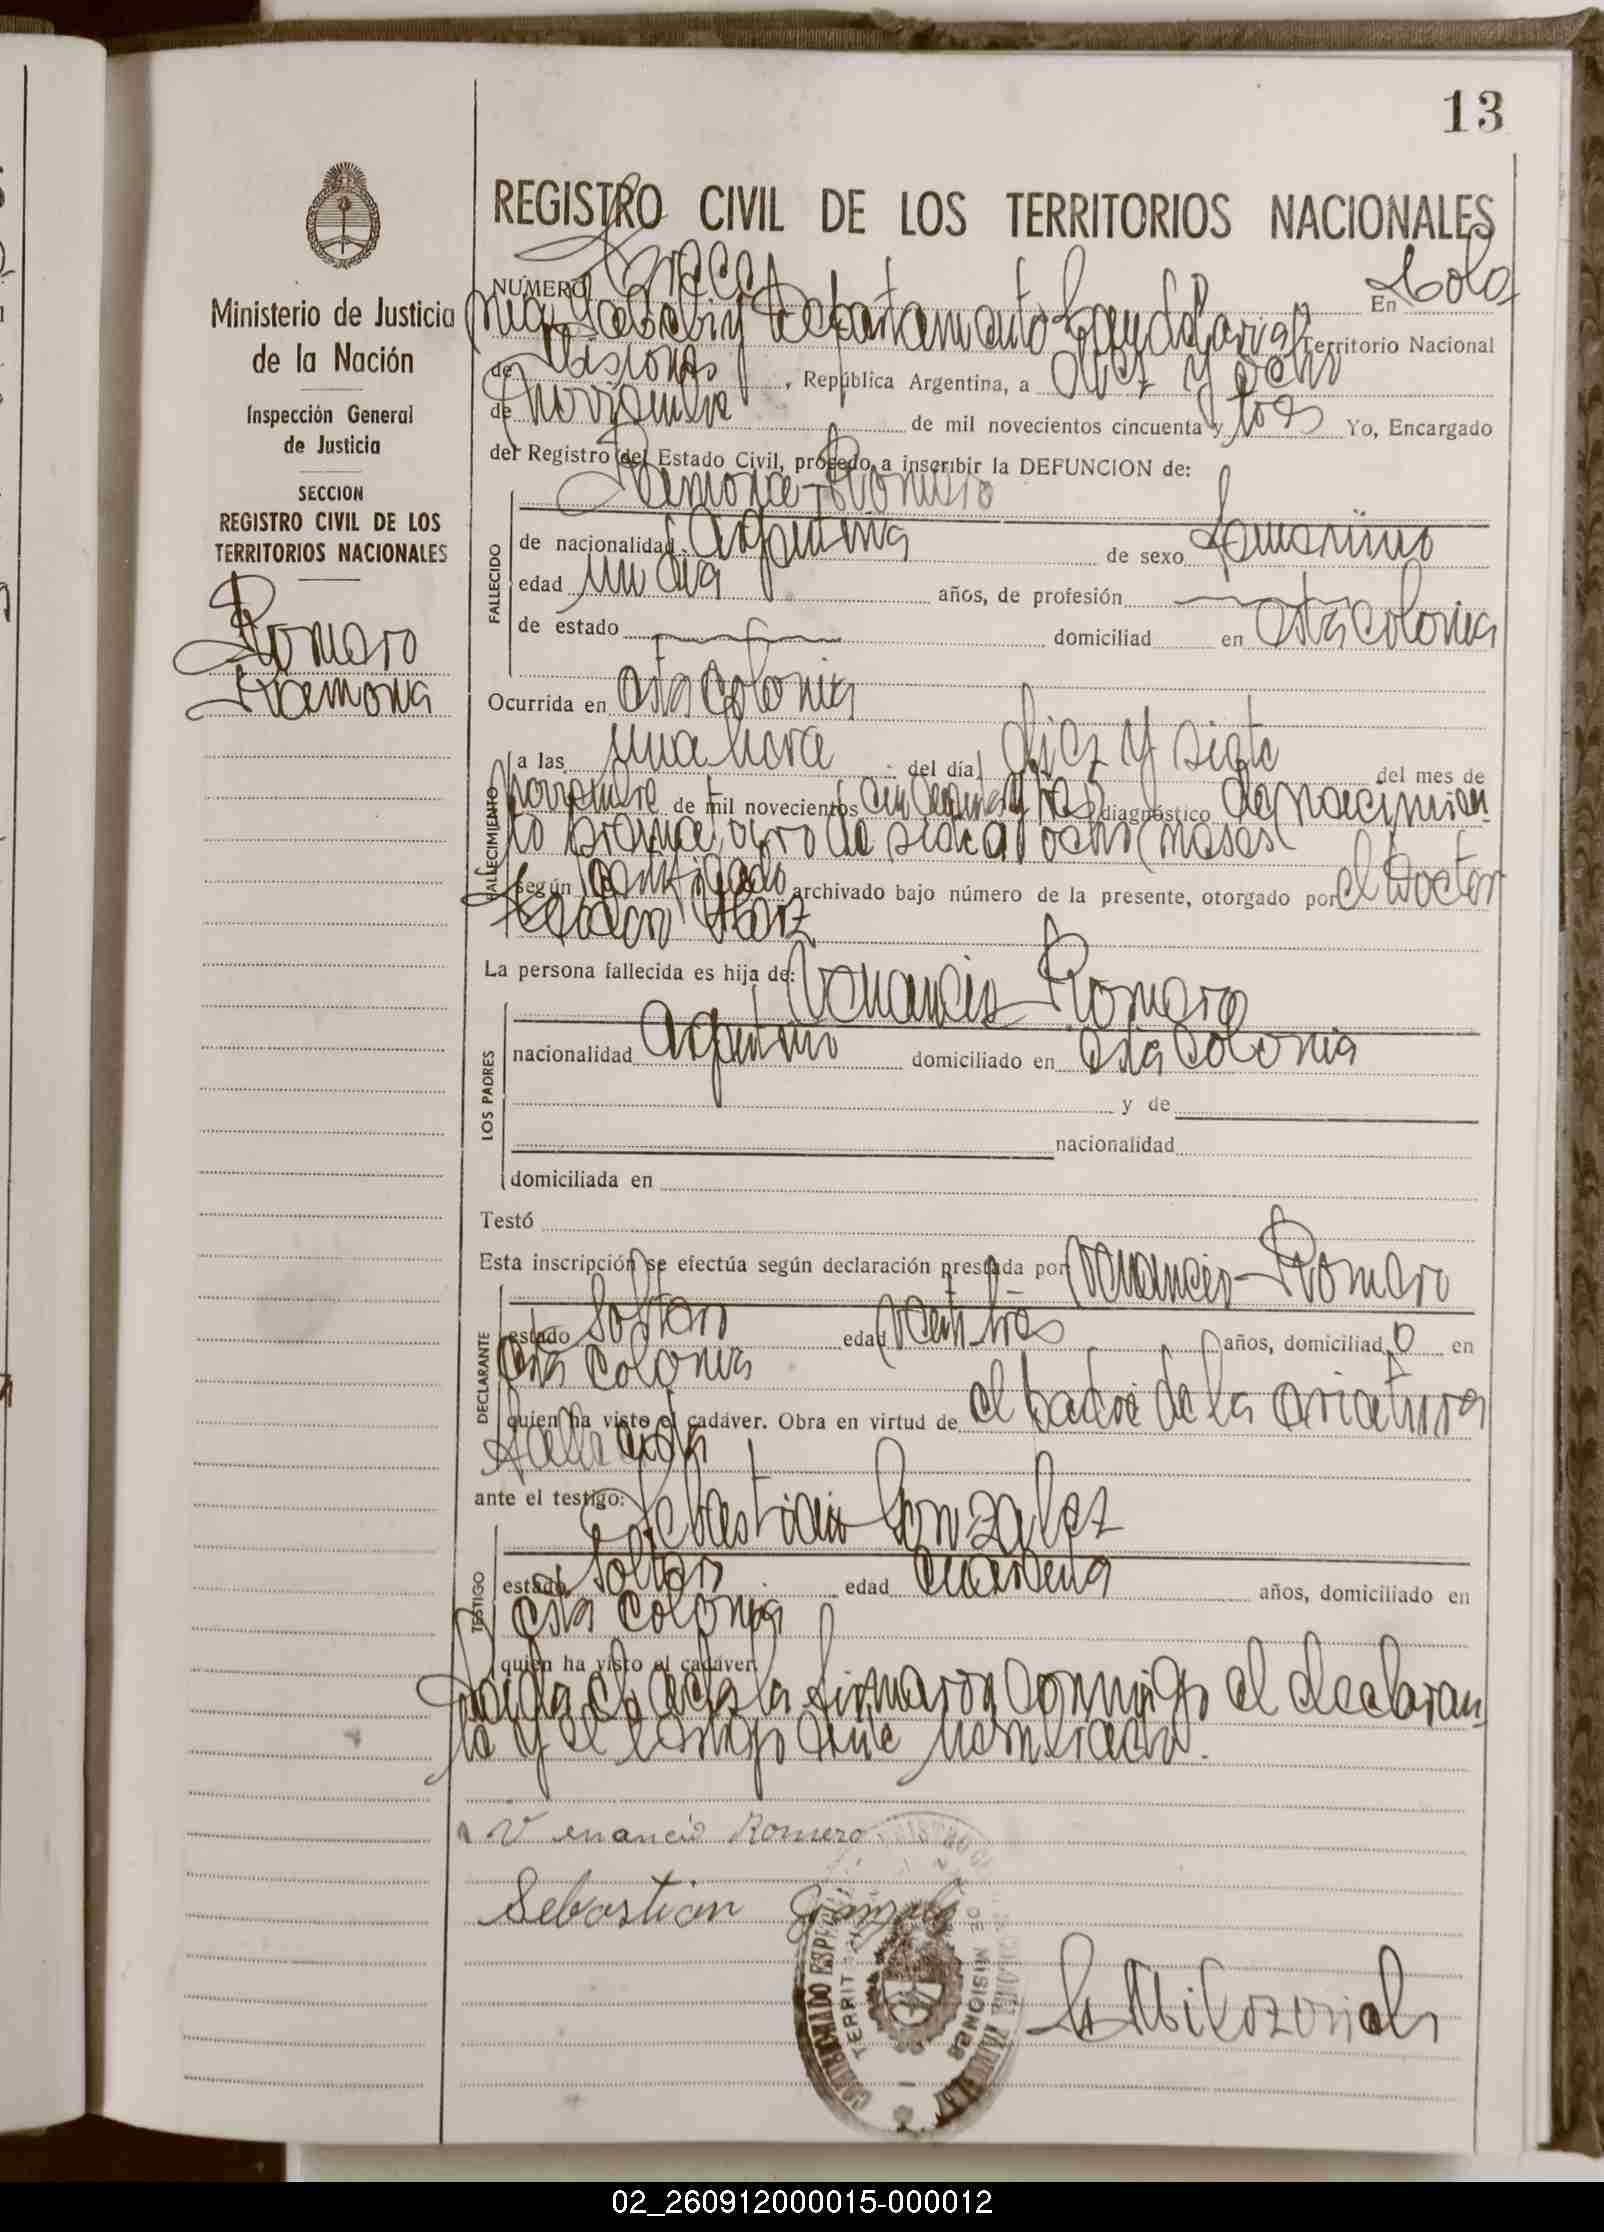 13
REGISTRO CIVIL DE LOS TERRITORIOS NACIONALES
NUMERO Trece En Colo
nia Departamento Candelaria Territorio Nacional
de Misiones, República Argentina, a diez y ocho
de noviembre de mil novecientos cincuenta y tres Yo, Encargado
del Registro del Estado Civil, procedo a inscribir la DEFUNCION de:
Ramona Romero
FALLECIDO
de nacionalidad Argentina de sexo femenino
edad un dia años, de profesión
de estado domiciliad en esta colonia
Ocurrida en esta colonia
FALLECIMIENTO
a las una hora del día diez y siete del mes de
noviembre de mil novecientos cincuenta y tres diagnóstico de nacimien
to prematuro de siete a ocho meses
según certificado archivado bajo número de la presente, otorgado por el Doctor
La persona fallecida es hija de: Venancio Romero
LOS PADRES
nacionalidad Argentino domiciliado en esta colonia
y de
nacionalidad
domiciliada en
Testó
Esta inscripción se efectúa según declaración prestada por Venancio Romero
DECLARANTE
estado Soltero edad veintitres años, domiciliado en
esta colonia
quien ha visto el cadáver. Obra en virtud de el padre de la criatura
fallecida
ante el testigo: Sebastian Gonzalez
TESTIGO
estado Soltero edad cuarenta años, domiciliado en
esta colonia
quien ha visto el cadáver.
Leida el acta la firmaron conmigo el declaran
te y el testigo ante nombrado.
Venancio Romero
Sebastian Gonzalez
TERRIT DE MISIONES
Ministerio de Justicia
de la Nación
Inspección General
de Justicia
SECCION
REGISTRO CIVIL DE LOS
TERRITORIOS NACIONALES
Romero
Ramona
02_260912000015-000012